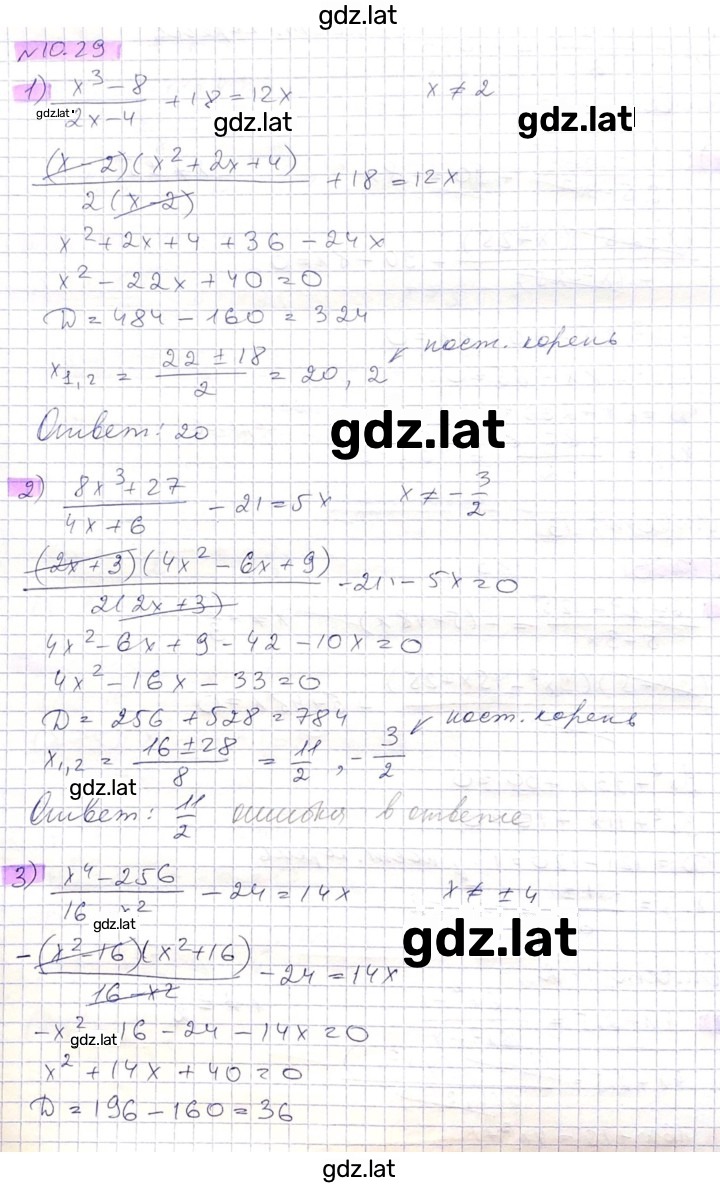 gdz.lat
№10.29
1) (x³-8)/(2x-4) +18=12x x≠2
gdz.lat gdz.lat gdz.lat
((x-2)(x²+2x+4))/(2(x-2)) +18=12x
x²+2x+4+36-24x
x²-22x+40=0
D=484-160=324
x₁,₂ = (22±18)/2 = 20, 2 ↙ пост. корень
Ответ: 20
gdz.lat
2) (8x³+27)/(4x+6) -21=5x x≠-3/2
((2x+3)(4x²-6x+9))/(2(2x+3)) -21-5x=0
4x²-6x+9-42-10x=0
4x²-16x-33=0
D=256+528=784
x₁,₂ = (16±28)/8 = 11/2, -3/2 ↙ пост. корень
gdz.lat
Ответ: 11/2 ошибка в ответе
3) (x⁴-256)/(16 x²) -24=14x x≠±4
gdz.lat gdz.lat
-((x²-16)(x²+16))/(16-x²) -24=14x
-x²-16-24-14x=0
gdz.lat
x²+14x+40=0
D=196-160=36
gdz.lat